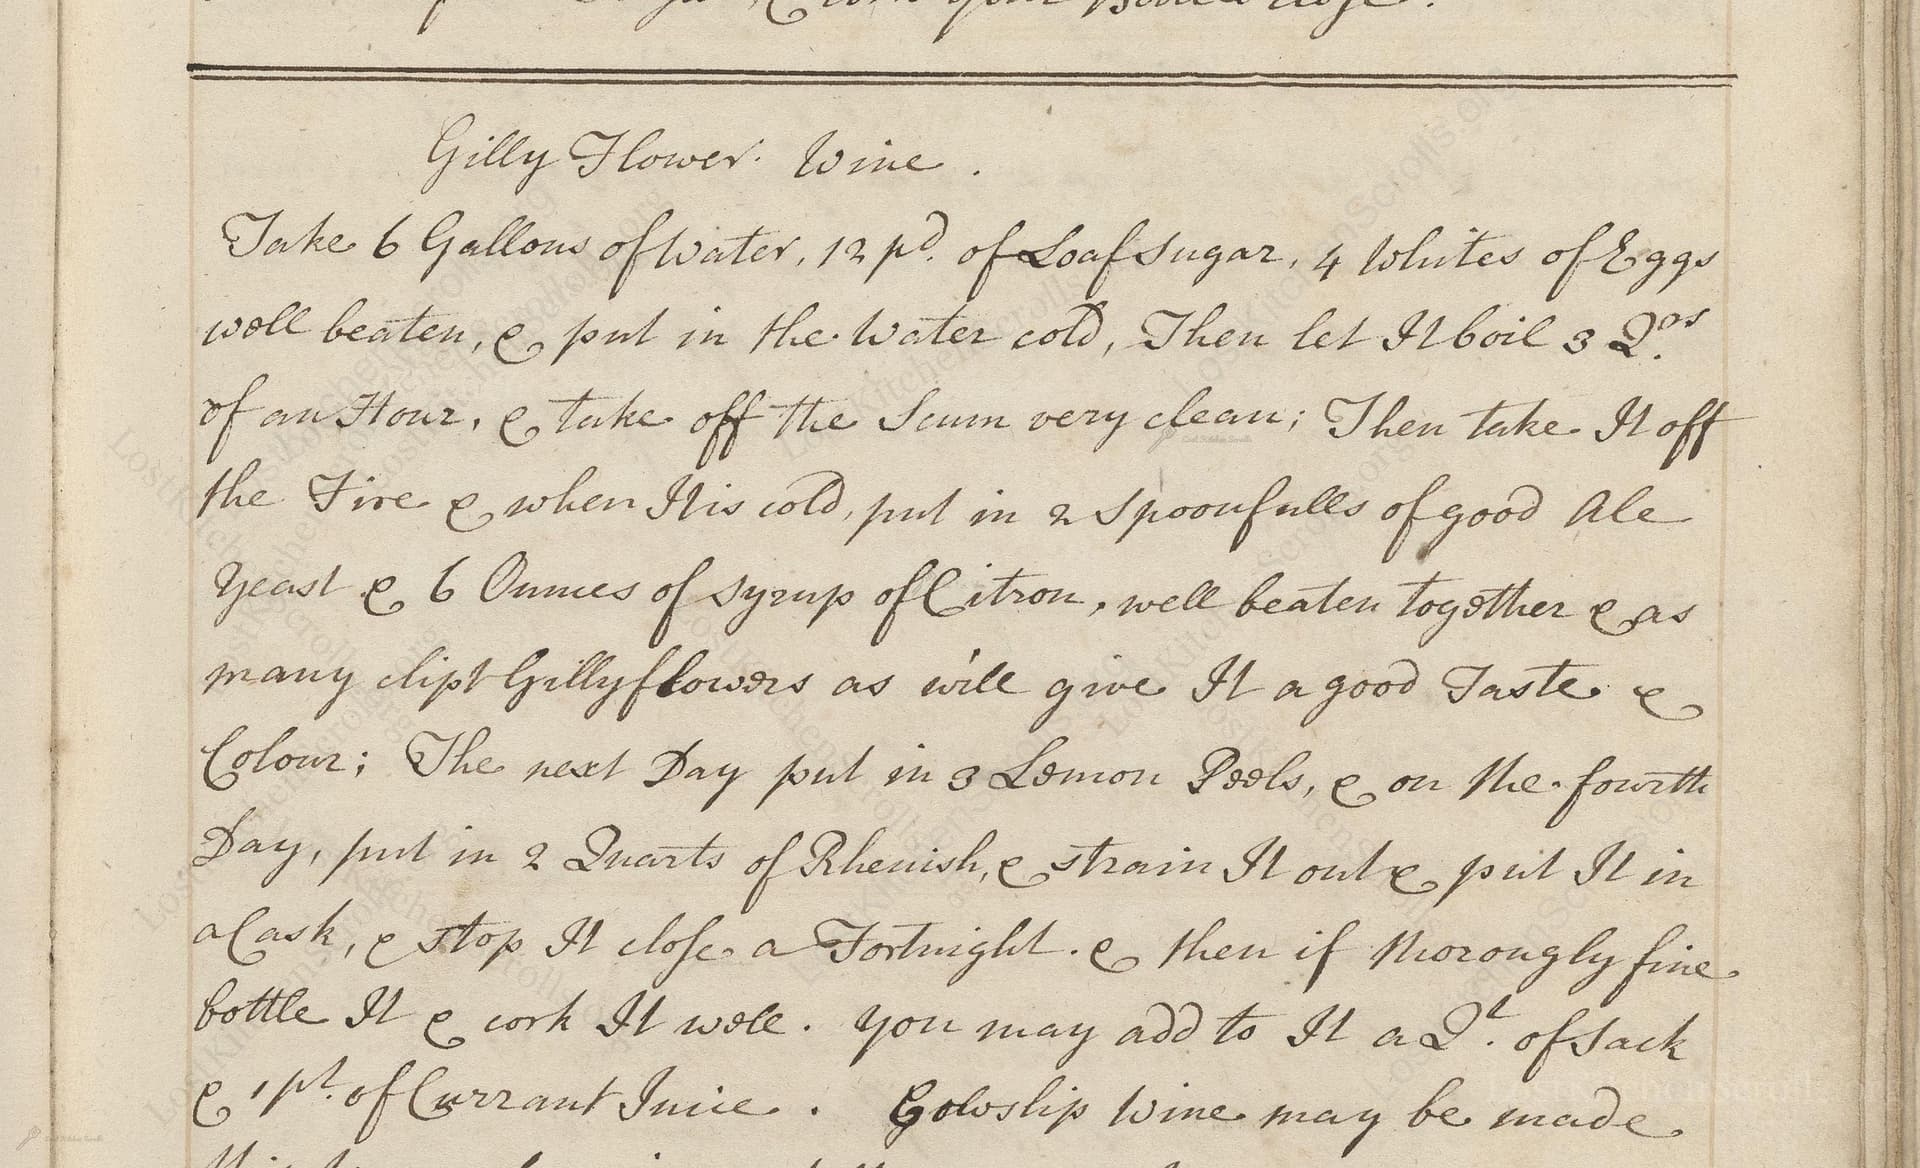 your Bottles close.
Gilly Flower Wine.
Take 6 Gallons of Water, 12 pd. of Loaf Sugar, 4 Whites of Eggs
well beaten, & put in the Water cold, Then let It boil 3 Qrs.
of an Hour, & take off the Scum very clean; Then take It off
the Fire & when It is cold, put in 2 Spoonfulls of good Ale
Yeast & 6 Ounces of Syrup of Citron, well beaten together & as
many clipt Gillyflowers as will give It a good Taste &
Colour; The next Day put in 3 Lemon Peels, & on the fourth
Day, put in 2 Quarts of Rhenish, & strain It out & put It in
a Cask, & stop It close a Fortnight. & then if thorougly fine
bottle It & cork It well. You may add to It a Qt. of Sack
& 1 pt. of Currant Juice. Cowslip Wine may be made